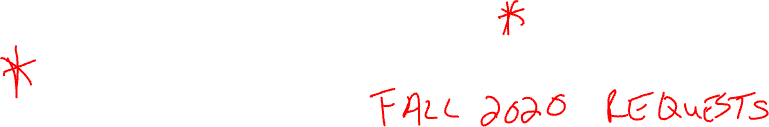 *
*
FALL 2020 REQUESTS